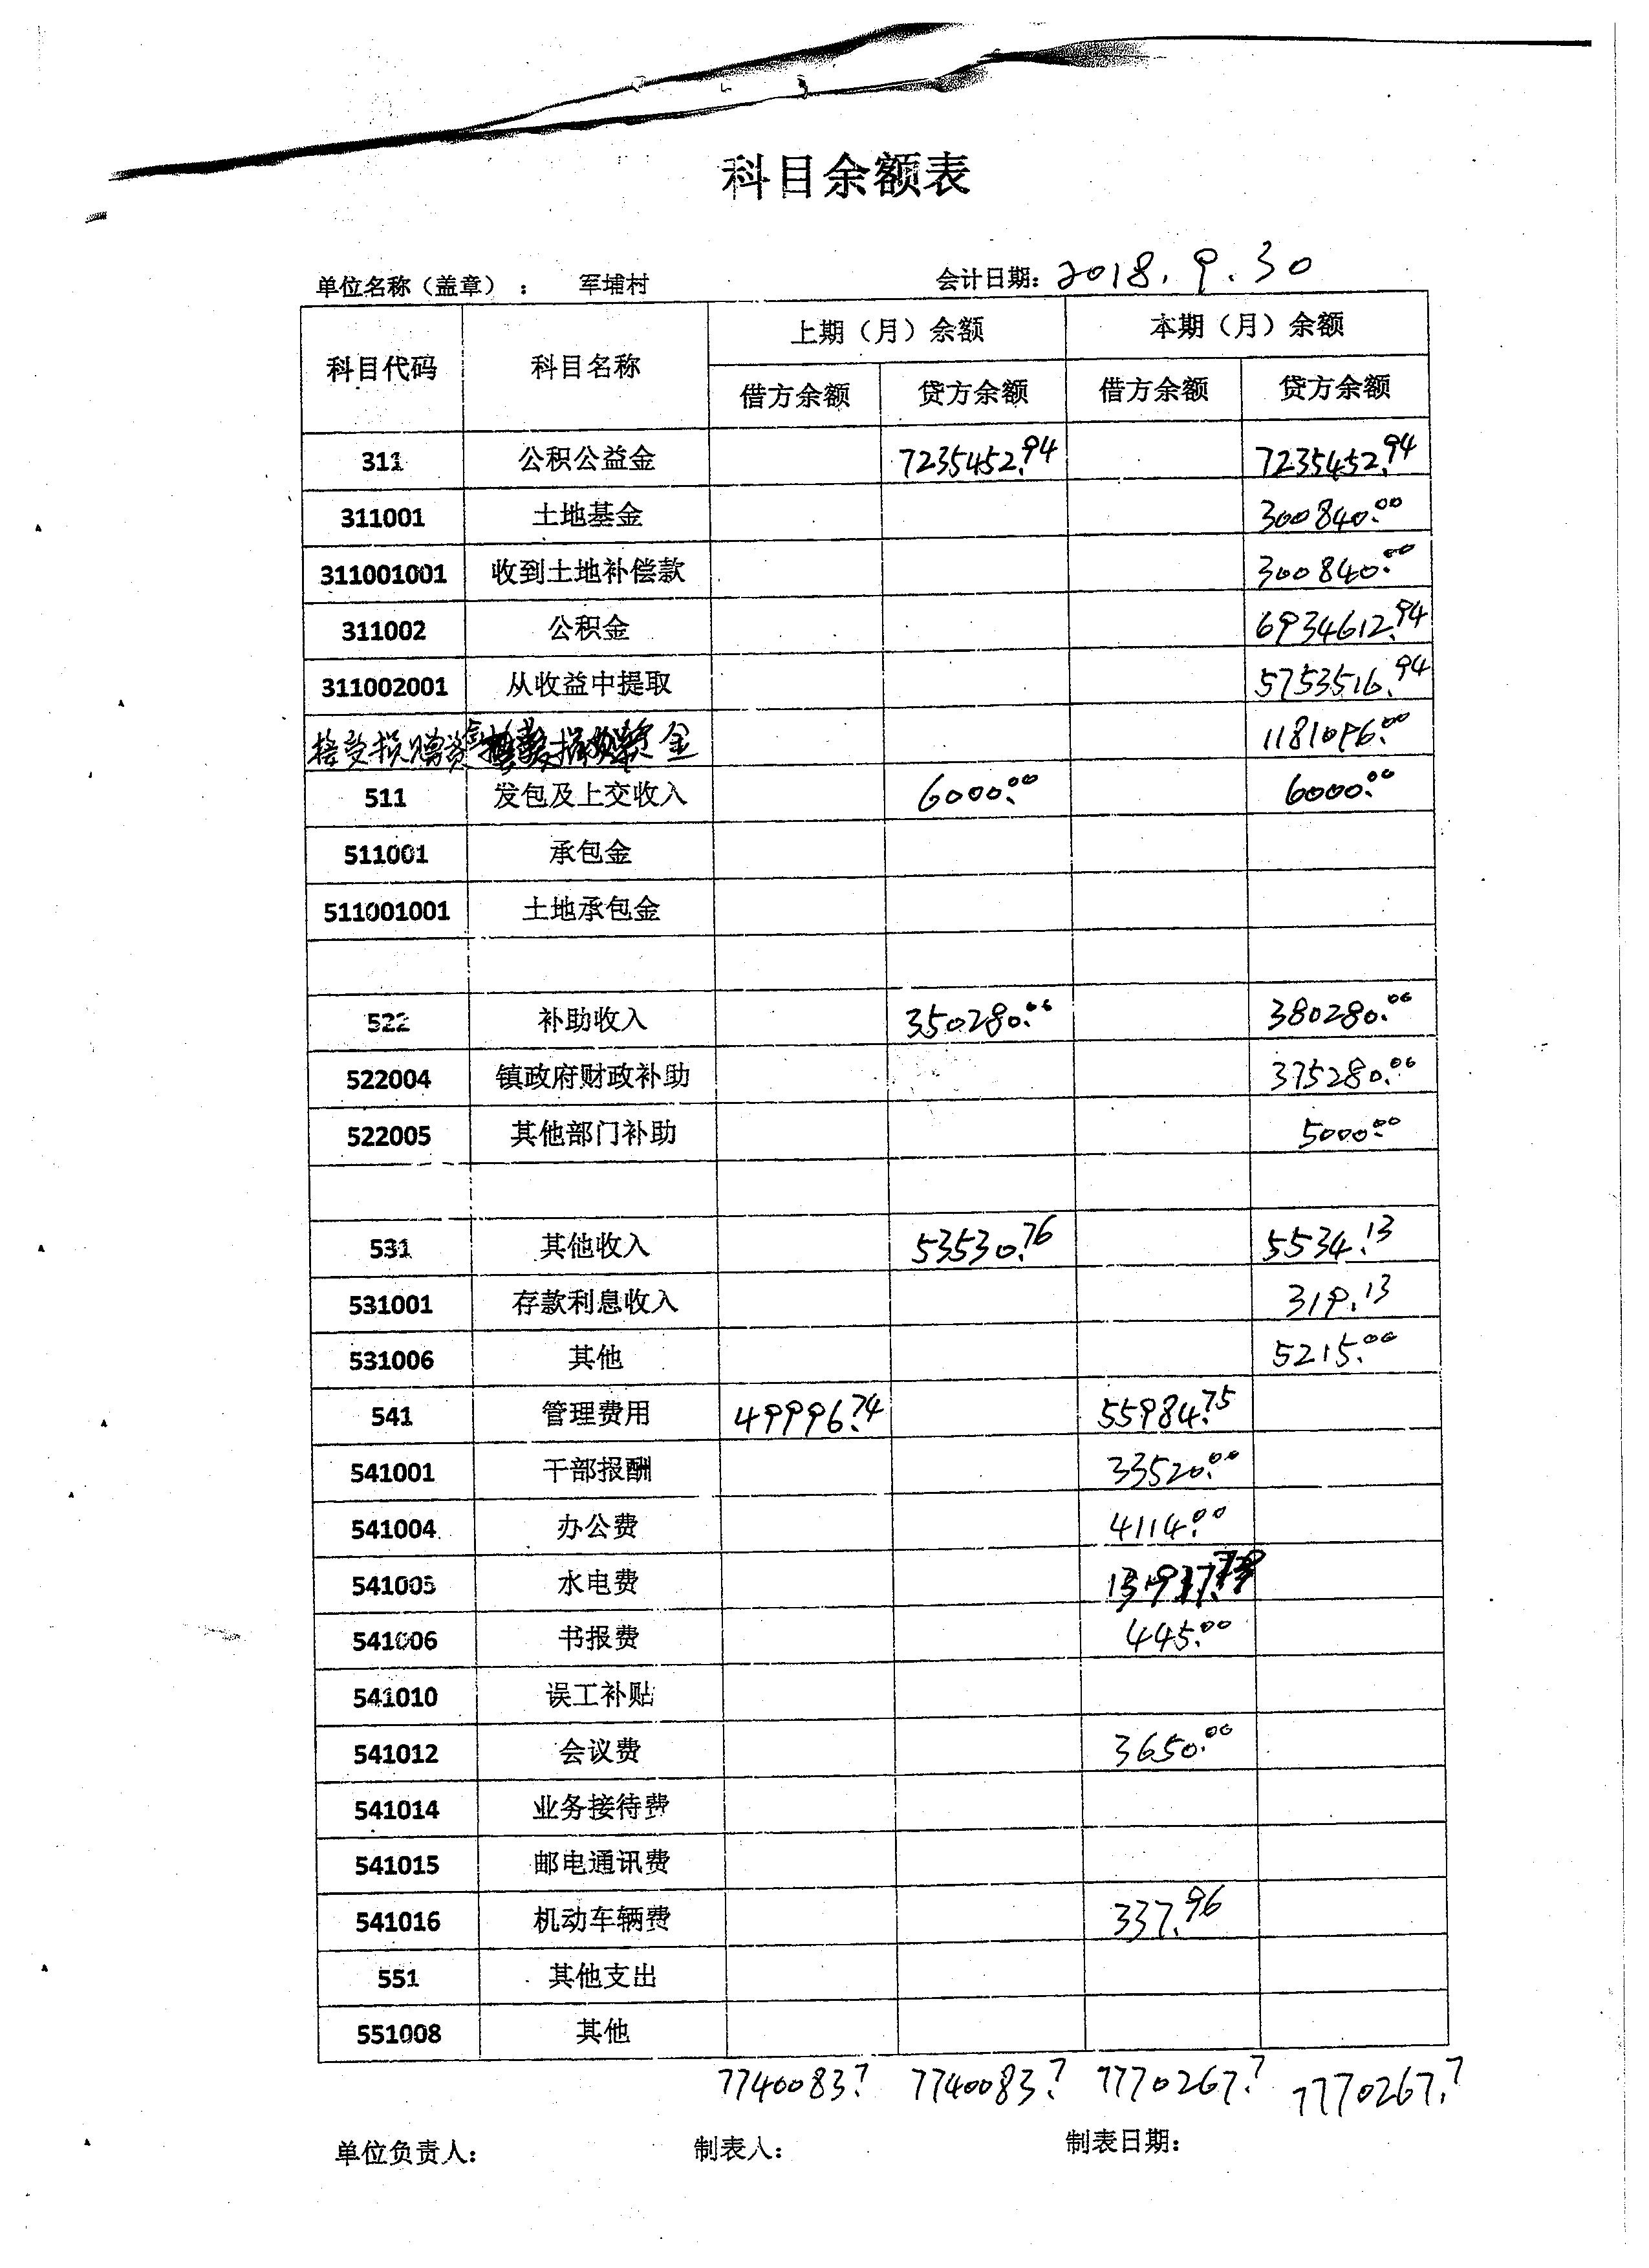 科目余额表
单位名称（盖章）： 军埔村 会计日期：2018.9.30
科目代码 科目名称 上期（月）余额 本期（月）余额
借方余额 贷方余额 借方余额 贷方余额
311 公积公益金 7235452.94 7235452.94
311001 土地基金 300840.00
311001001 收到土地补偿款 300840.00
311002 公积金 6934612.94
311002001 从收益中提取 5753516.94
接受损赠资金 1181096.00
511 发包及上交收入 6000.00 6000.00
511001 承包金
511001001 土地承包金
522 补助收入 350280.00 380280.00
522004 镇政府财政补助 375280.00
522005 其他部门补助 5000.00
531 其他收入 53530.76 5534.13
531001 存款利息收入 319.13
531006 其他 5215.00
541 管理费用 49996.74 55984.75
541001 干部报酬 33520.00
541004 办公费 4114.00
541005 水电费
541006 书报费 445.00
541010 误工补贴
541012 会议费 3650.00
541014 业务接待费
541015 邮电通讯费
541016 机动车辆费 337.96
551 其他支出
551008 其他
7740083.7 7740083.7 7770267.7 7770267.7
单位负责人： 制表人： 制表日期：